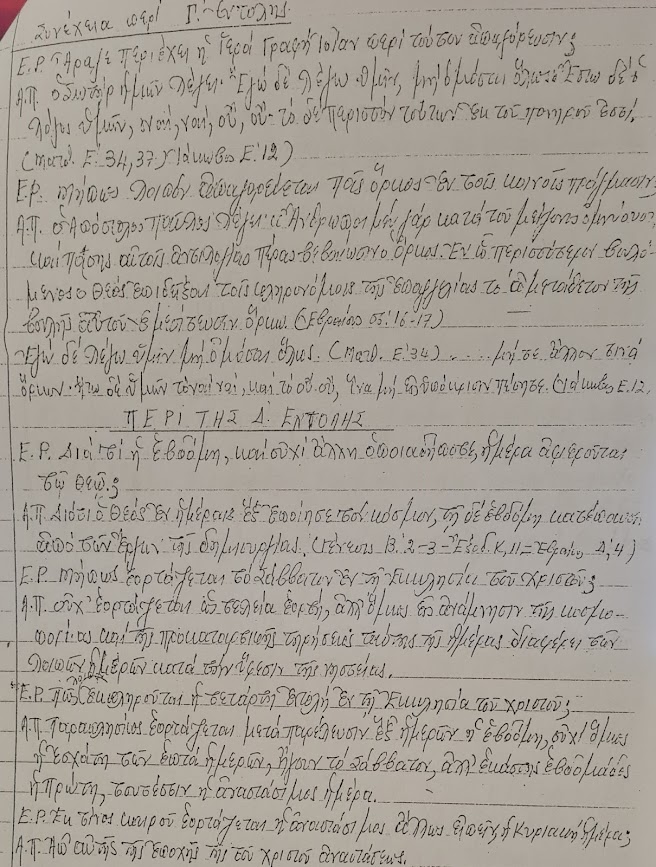 Συνέχεια περί Γ. Ἐντολῆς
Ε.Ρ. Ἆραγε περιέχει ἡ Ἱερά Γραφή ἰδίαν περί τούτου ἀπαγόρευσιν;
Α.Π. ὁ Σωτήρ ἡμῶν λέγει. "Ἐγώ δέ λέγω ὑμῖν, μή ὀμόσαι ὅλως. Ἔστω δέ ὁ
λόγος ὑμῶν, ναί, ναί, οὔ, οὔ. τό δέ περισσόν τούτων ἐκ τοῦ πονηροῦ ἐστί.
(Ματθ. Ε. 34, 37. Ἰάκωβος Ε. 12)
Ε.Ρ. Μήπως λοιπόν ἀπαγορεύεται πᾶς ὅρκος ἐν τοῖς κοινοῖς πράγμασιν;
Α.Π. ὁ Ἀπόστολος Παῦλος λέγει. "Ἄνθρωποι μέν γάρ κατά τοῦ μείζονος ὀμνύουσι,
καί πάσης αὐτοῖς ἀντιλογίας πέρας βεβαίωσιν ὁ ὅρκος. Ἐν ᾧ περισσότερον βουλό-
μενος ὁ Θεός ἐπιδεῖξαι τοῖς κληρονόμοις τῆς ἐπαγγελίας τό ἀμετάθετον τῆς
βουλῆς αὐτοῦ ἐμεσίτευσεν ὅρκῳ. (Ἑβραίους στ. 16-17)
Ἐγώ δέ λέγω ὑμῖν μή ὀμόσαι ὅλως. (Ματθ. Ε. 34) .... μήτε ἄλλον τινά
ὅρκον. ἤτω δέ ὑμῶν τό ναί ναί, καί τό οὔ οὔ, ἵνα μή εἰς ὑπόκρισιν πέσητε. (Ἰάκωβος Ε. 12.
ΠΕΡΙ ΤΗΣ Δ. ΕΝΤΟΛΗΣ
Ε.Ρ. Διατί ἡ ἑβδόμη, καί οὐχί ἄλλη ὁποιαδήποτε, ἡμέρα ἀφιεροῦται
τῷ Θεῷ;
Α.Π. Διότι ὁ Θεός ἐν ἡμέραις ἕξ ἐποίησε τόν κόσμον, τῇ δέ ἑβδόμῃ κατέπαυσε
ἀπό τῶν ἔργων τῆς δημιουργίας. (Γένεσις Β. 2-3 - Ἔξοδ. Κ, 11 - Ἑβραίους Δ, 4)
Ε.Ρ. Μήπως ἑορτάζεται τό Σάββατον ἐν τῇ Ἐκκλησίᾳ τοῦ Χριστοῦ;
Α.Π. οὐχ' ἑορτάζεται ὡς τελεία ἑορτή, ἀλλ' ὅμως εἰς ἀνάμνησιν τῆς κοσμο-
ποιΐας καί τῆς προκαταρκτικῆς τηρήσεως ταύτης τῆς ἡμέρας διαφέρει τῶν
λοιπῶν ἡμερῶν κατά τήν ὕφεσιν τῆς νηστείας.
Ε.Ρ. Πῶς λοιπόν ἐκπληροῦται ἡ τετάρτη ἐντολή ἐν τῇ Ἐκκλησίᾳ τοῦ Χριστοῦ;
Α.Π. Παραπλησίως ἑορτάζεται μετά παρέλευσιν ἕξ ἡμερῶν ἡ ἑβδόμη, οὐχί ὅμως
ἡ ἐσχάτη τῶν ἑπτά ἡμερῶν, ἤγουν τό Σάββατον, ἀλλ' ἑκάστης ἑβδομάδος
ἡ πρώτη, τουτέστιν ἡ ἀναστάσιμος ἡμέρα.
Ε.Ρ. Ἐκ τίνος καιροῦ ἑορτάζεται ἡ ἀναστάσιμος ἄλλως εἰπεῖν ἡ Κυριακή ἡμέρα;
Α.Π. Ἀπ' αὐτῆς τῆς ἐποχῆς τῆς τοῦ Χριστοῦ ἀναστάσεως.